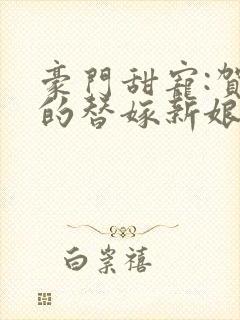 豪門甜寵:賀
的替嫁新娘
白崇禧